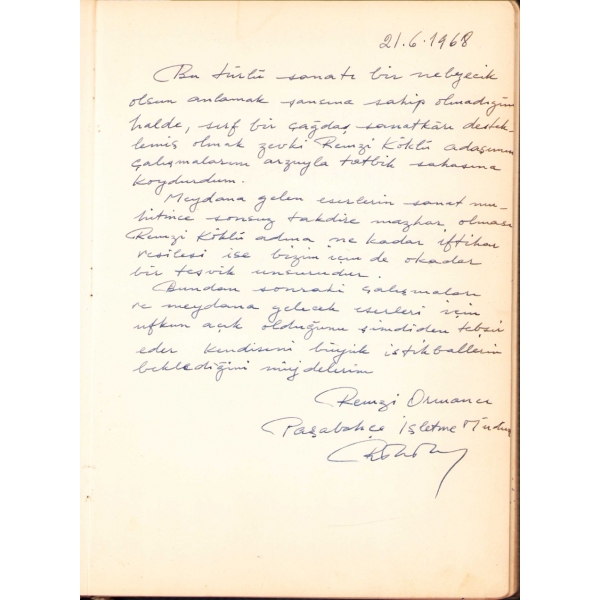 21.6.1968
Bu türlü sanatı bir nebzecik
olsun anlamak şansına sahip olmadığım
halde, sırf bir çağdaş sanatkârı destek-
lemiş olmak zevki Remzi Köklü adaşımın
çalışmalarını arzuyla tatbik sahasına
koydurdum.
Meydana gelen eserlerin sanat mu-
hitince sonsuz takdire mazhar olması
Remzi Köklü adına ne kadar iftihar
vesilesi ise bizim için de okadar
bir teşvik unsurudur.
Bundan sonraki çalışmaları
ve meydana gelecek eserleri için
ufkun açık olduğunu şimdiden tebşir
eder kendisini büyük istikballerin
beklediğini müjdelerim
Remzi Ormancı
Paşabahçe İşletme Müdürü